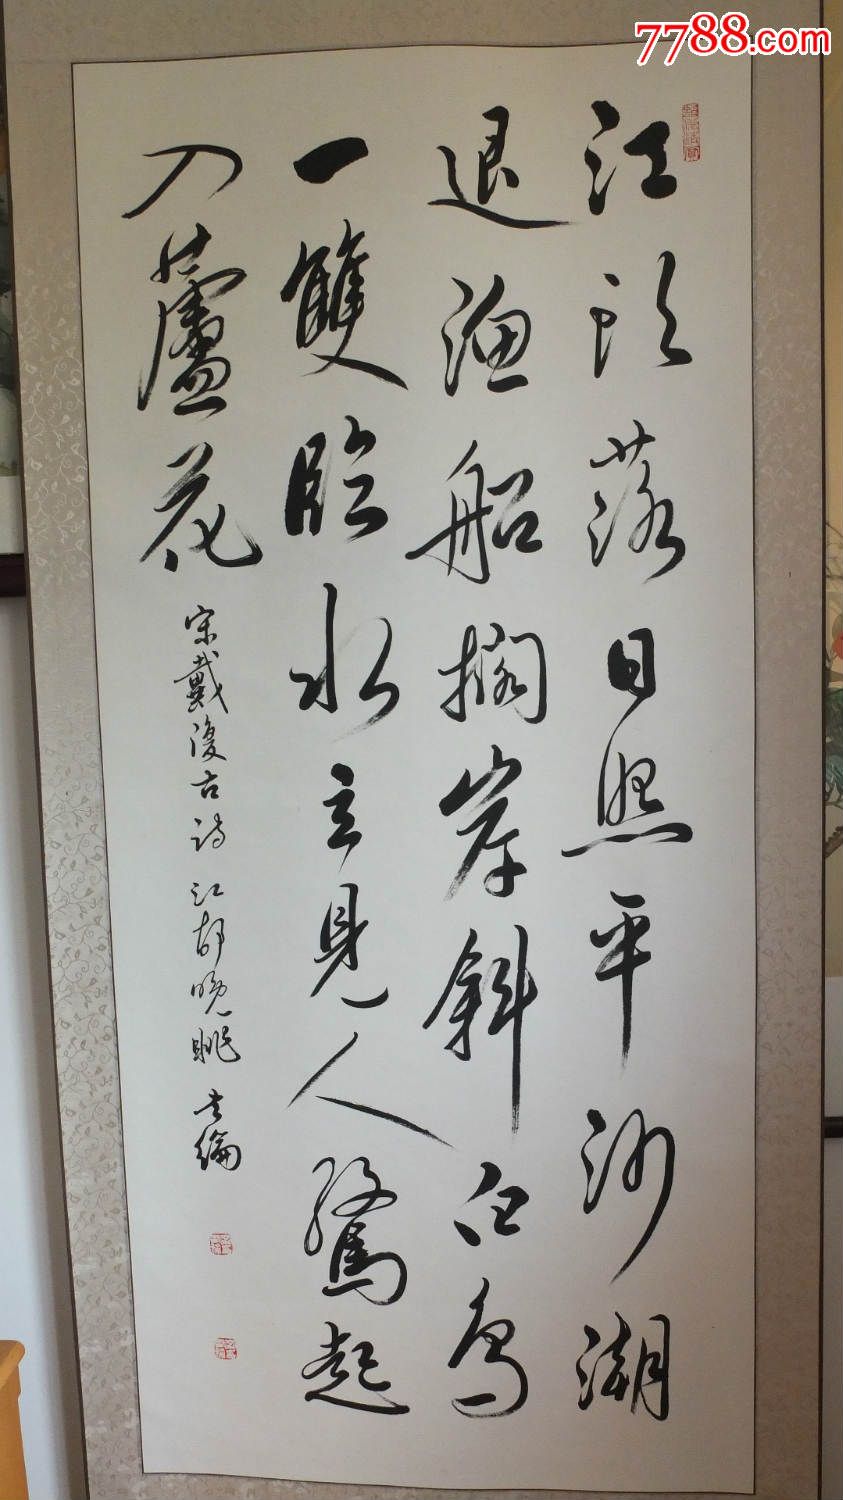 7788.com
江頭落日照平沙潮
退漁船搁岸斜白鸟
一雙臨水立見人驚起
入蘆花
宋戴復古詩江村晚眺 士綸